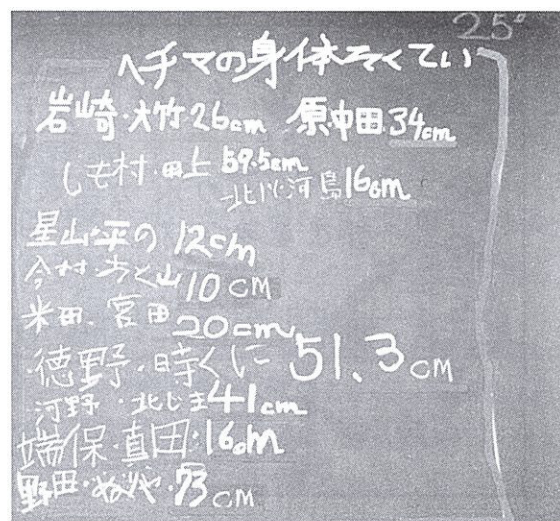 25°
ヘチマの身体そくてい
岩崎・大竹26cm 原・中田34cm
しも村・田上59.5cm
北川・河島16cm
星山・平の12cm
今村・おく山10cm
米田、宮田20cm
徳野・時くに51.3cm
河野・北じま41cm
端保・真田16cm
野田・ぬりや・73cm